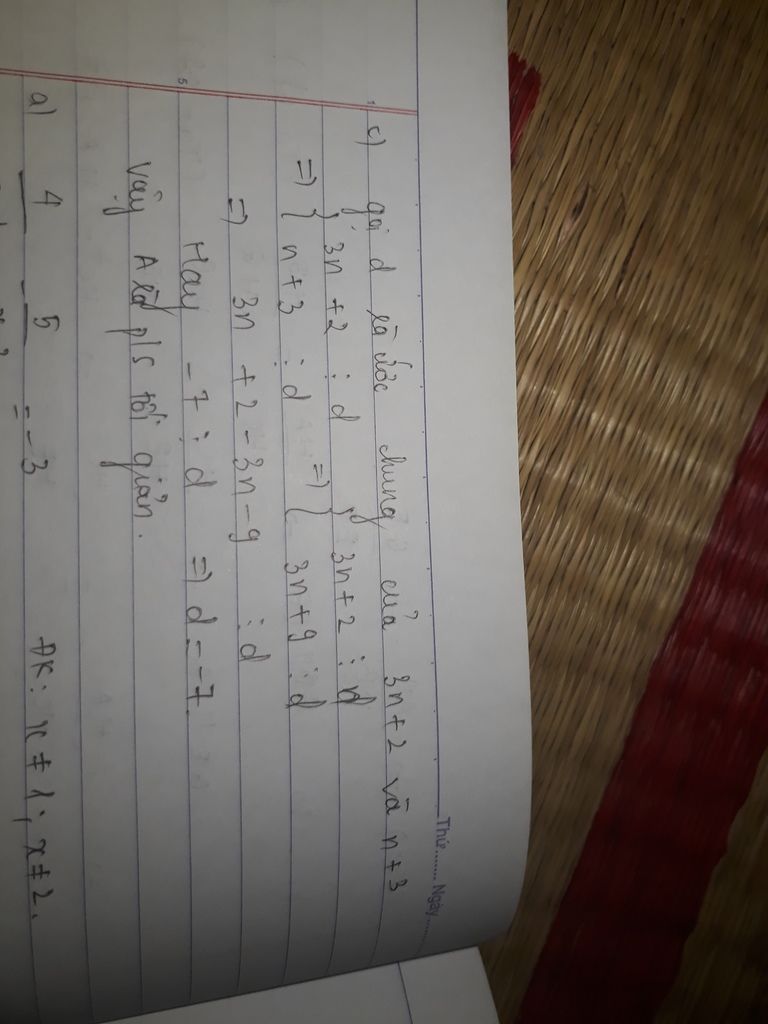 Thứ........ Ngày........
c) gọi d là ước chung của 3n+2 và n+3
=> { 3n+2 ⋮ d => { 3n+2 ⋮ d
n+3 ⋮ d 3n+9 ⋮ d
=> 3n+2-3n-9 ⋮ d
Hay -7 ⋮ d => d=-7.
Vậy A là p/s tối giản.
a) 4 - 5 = -3 ĐK: x≠1; x≠2.